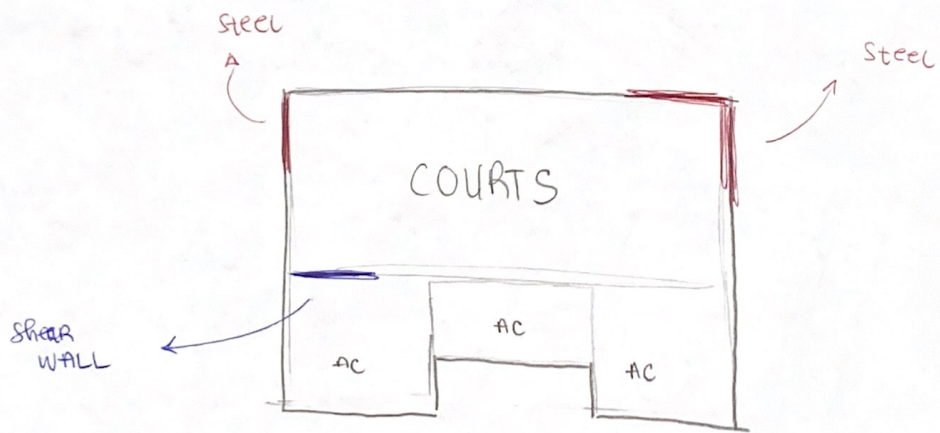 Steel
Steel
COURTS
Shear
WALL
AC
AC
AC